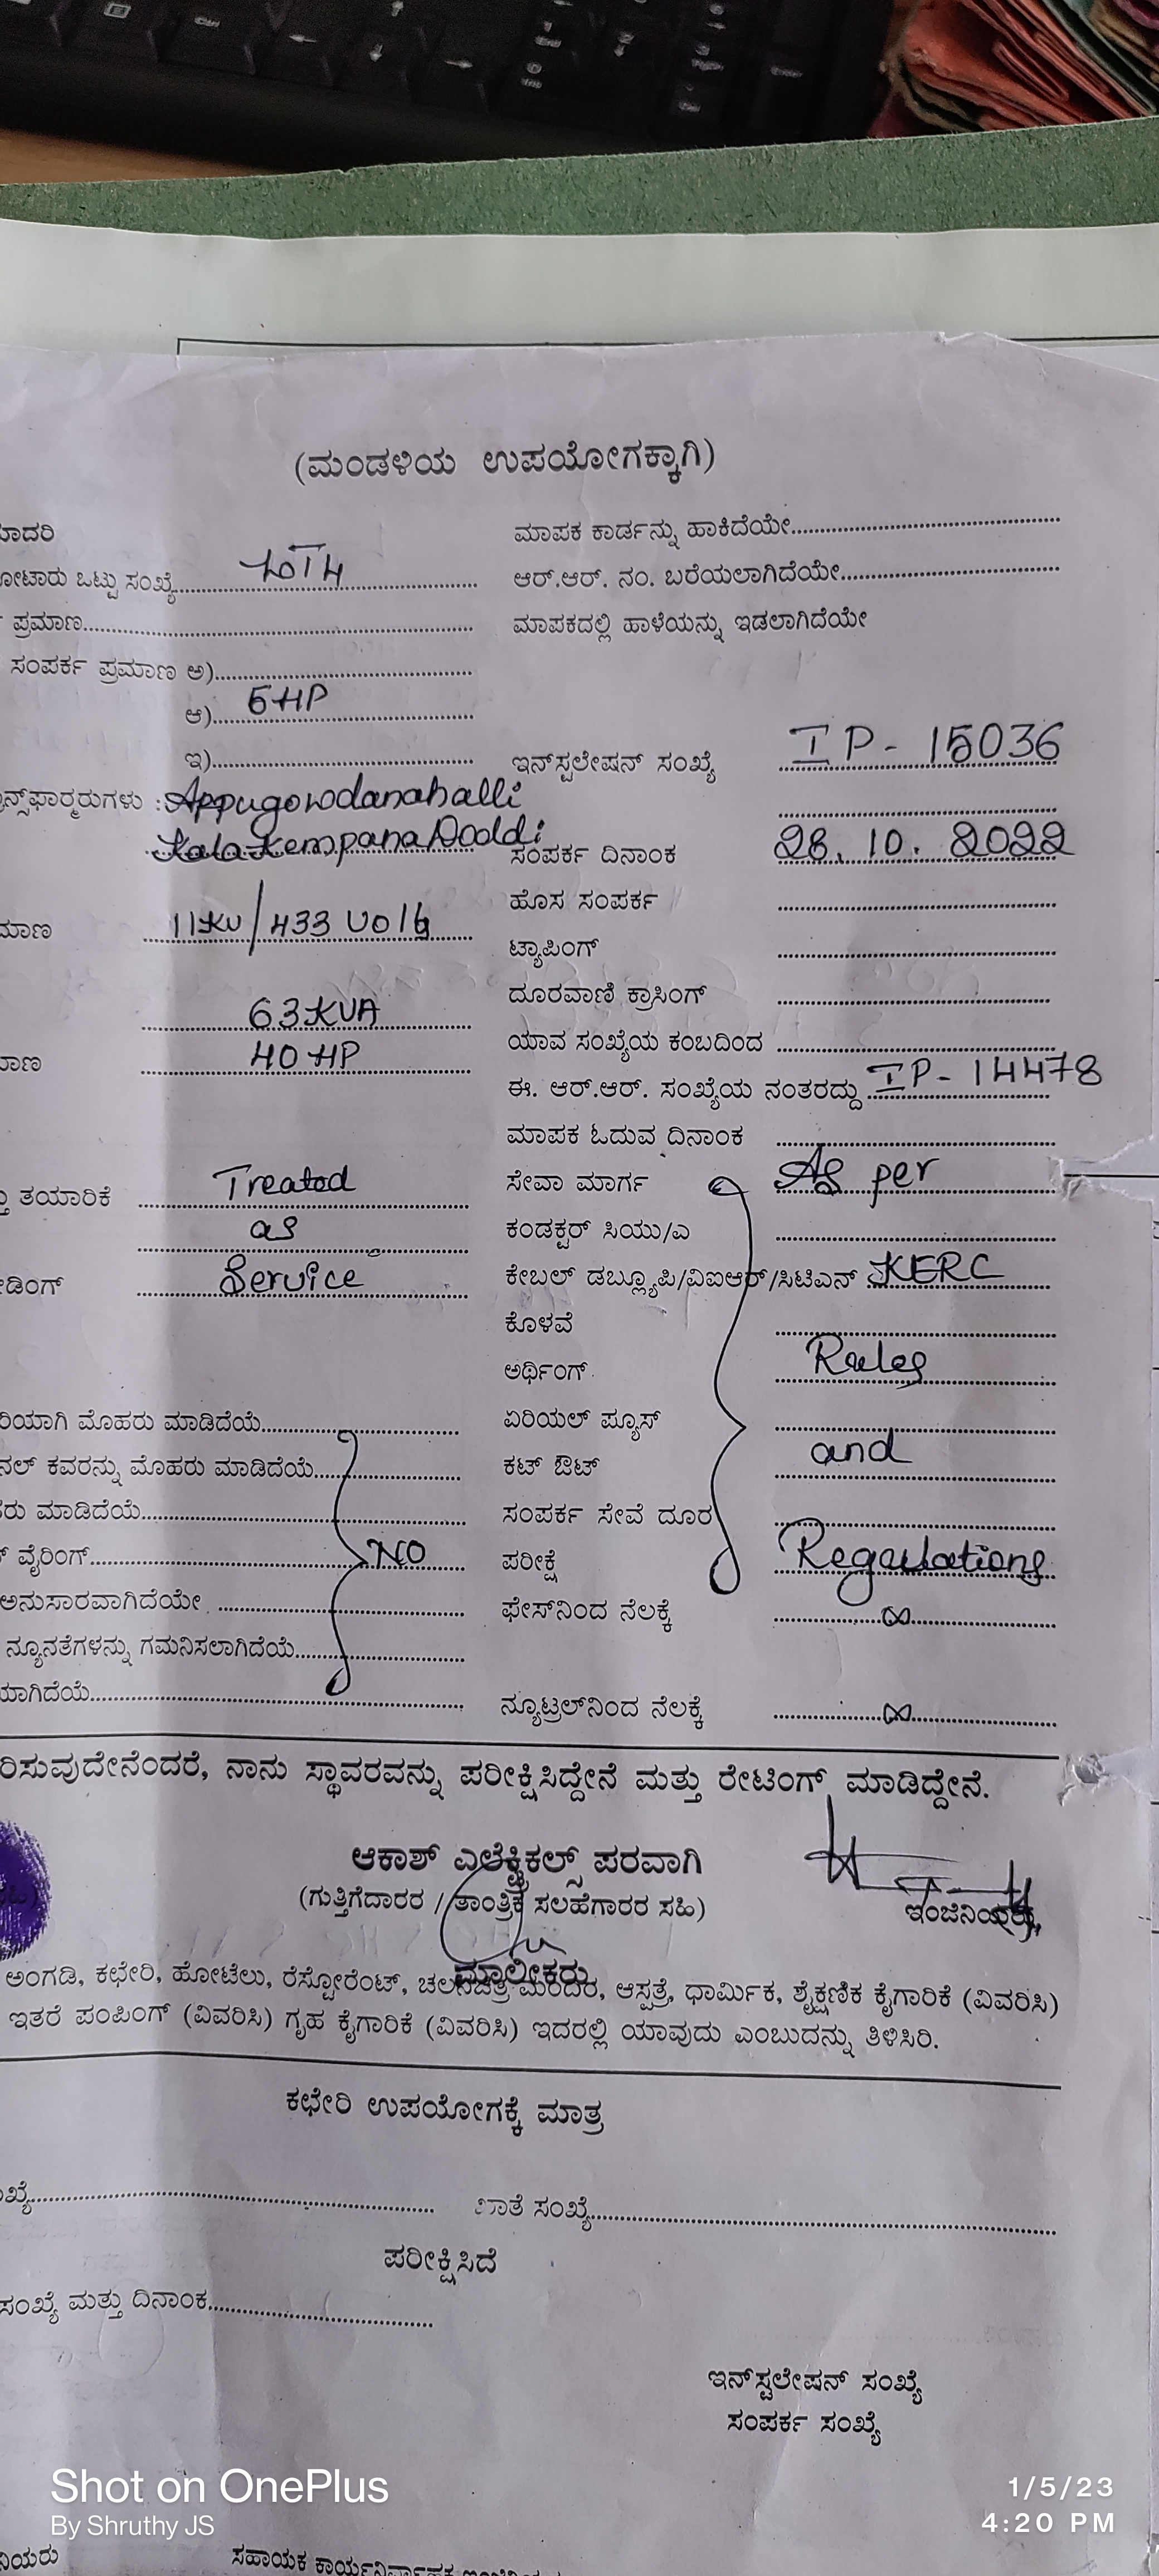 (ಮಂಡಳಿಯ ಉಪಯೋಗಕ್ಕಾಗಿ)
ಮಾಪಕ ಕಾರ್ಡನ್ನು ಹಾಕಿದೆಯೇ
ಒಟ್ಟು ಸಂಖ್ಯೆ
ಆರ್.ಆರ್. ನಂ. ಬರೆಯಲಾಗಿದೆಯೇ
ಪ್ರಮಾಣ
ಮಾಪಕದಲ್ಲಿ ಹಾಳೆಯನ್ನು ಇಡಲಾಗಿದೆಯೇ
ಸಂಪರ್ಕ ಪ್ರಮಾಣ ಅ)
ಆ) 5HP
ಇ)
ಇನ್‌ಸ್ಟಲೇಷನ್ ಸಂಖ್ಯೆ IP- 15036
: Appugowdanahalli
KalaKempanaDoddi
ಸಂಪರ್ಕ ದಿನಾಂಕ 28. 10. 2022
ಹೊಸ ಸಂಪರ್ಕ
11KV/433 Volts
ಟ್ಯಾಪಿಂಗ್
ದೂರವಾಣಿ ಕ್ರಾಸಿಂಗ್
63KVA
ಯಾವ ಸಂಖ್ಯೆಯ ಕಂಬದಿಂದ
40 HP
ಈ. ಆರ್.ಆರ್. ಸಂಖ್ಯೆಯ ನಂತರದ್ದು IP- 14478
ಮಾಪಕ ಓದುವ ದಿನಾಂಕ
ತಯಾರಿಕೆ Treated
ಸೇವಾ ಮಾರ್ಗ As per
as
ಕಂಡಕ್ಟರ್ ಸಿಯು/ಎ
Service
ಕೇಬಲ್ ಡಬ್ಲ್ಯೂಪಿ/ವಿಐಆರ್/ಸಿಟಿಎನ್ KERC
ಕೊಳವೆ
ಅರ್ಥಿಂಗ್ Rules
ಮೊಹರು ಮಾಡಿದೆಯೆ
ಏರಿಯಲ್ ಫ್ಯೂಸ್
ಕವರನ್ನು ಮೊಹರು ಮಾಡಿದೆಯೆ
ಕಟ್ ಔಟ್ and
ಮಾಡಿದೆಯೆ
ಸಂಪರ್ಕ ಸೇವೆ ದೂರ
ವೈರಿಂಗ್ NO
ಪರೀಕ್ಷೆ Regulations
ಅನುಸಾರವಾಗಿದೆಯೇ
ಫೇಸ್‌ನಿಂದ ನೆಲಕ್ಕೆ ∞
ನ್ಯೂನತೆಗಳನ್ನು ಗಮನಿಸಲಾಗಿದೆಯೆ
ನ್ಯೂಟ್ರಲ್‌ನಿಂದ ನೆಲಕ್ಕೆ ∞
ನಾನು ಸ್ಥಾವರವನ್ನು ಪರೀಕ್ಷಿಸಿದ್ದೇನೆ ಮತ್ತು ರೇಟಿಂಗ್ ಮಾಡಿದ್ದೇನೆ.
ಆಕಾಶ್ ಎಲೆಕ್ಟ್ರಿಕಲ್ಸ್ ಪರವಾಗಿ
(ಗುತ್ತಿಗೆದಾರರ / ತಾಂತ್ರಿಕ ಸಲಹೆಗಾರರ ಸಹಿ)
ಮಾಲೀಕರು
ಅಂಗಡಿ, ಕಛೇರಿ, ಹೋಟೆಲು, ರೆಸ್ಟೋರೆಂಟ್, ಚಲನಚಿತ್ರ ಮಂದಿರ, ಆಸ್ಪತ್ರೆ, ಧಾರ್ಮಿಕ, ಶೈಕ್ಷಣಿಕ ಕೈಗಾರಿಕೆ (ವಿವರಿಸಿ)
ಇತರೆ ಪಂಪಿಂಗ್ (ವಿವರಿಸಿ) ಗೃಹ ಕೈಗಾರಿಕೆ (ವಿವರಿಸಿ) ಇದರಲ್ಲಿ ಯಾವುದು ಎಂಬುದನ್ನು ತಿಳಿಸಿರಿ.
ಕಛೇರಿ ಉಪಯೋಗಕ್ಕೆ ಮಾತ್ರ
ಖಾತೆ ಸಂಖ್ಯೆ
ಪರೀಕ್ಷಿಸಿದೆ
ಸಂಖ್ಯೆ ಮತ್ತು ದಿನಾಂಕ
ಇನ್‌ಸ್ಟಲೇಷನ್ ಸಂಖ್ಯೆ
ಸಂಪರ್ಕ ಸಂಖ್ಯೆ
Shot on OnePlus
By Shruthy JS
1/5/23
4:20 PM
ಸಹಾಯಕ